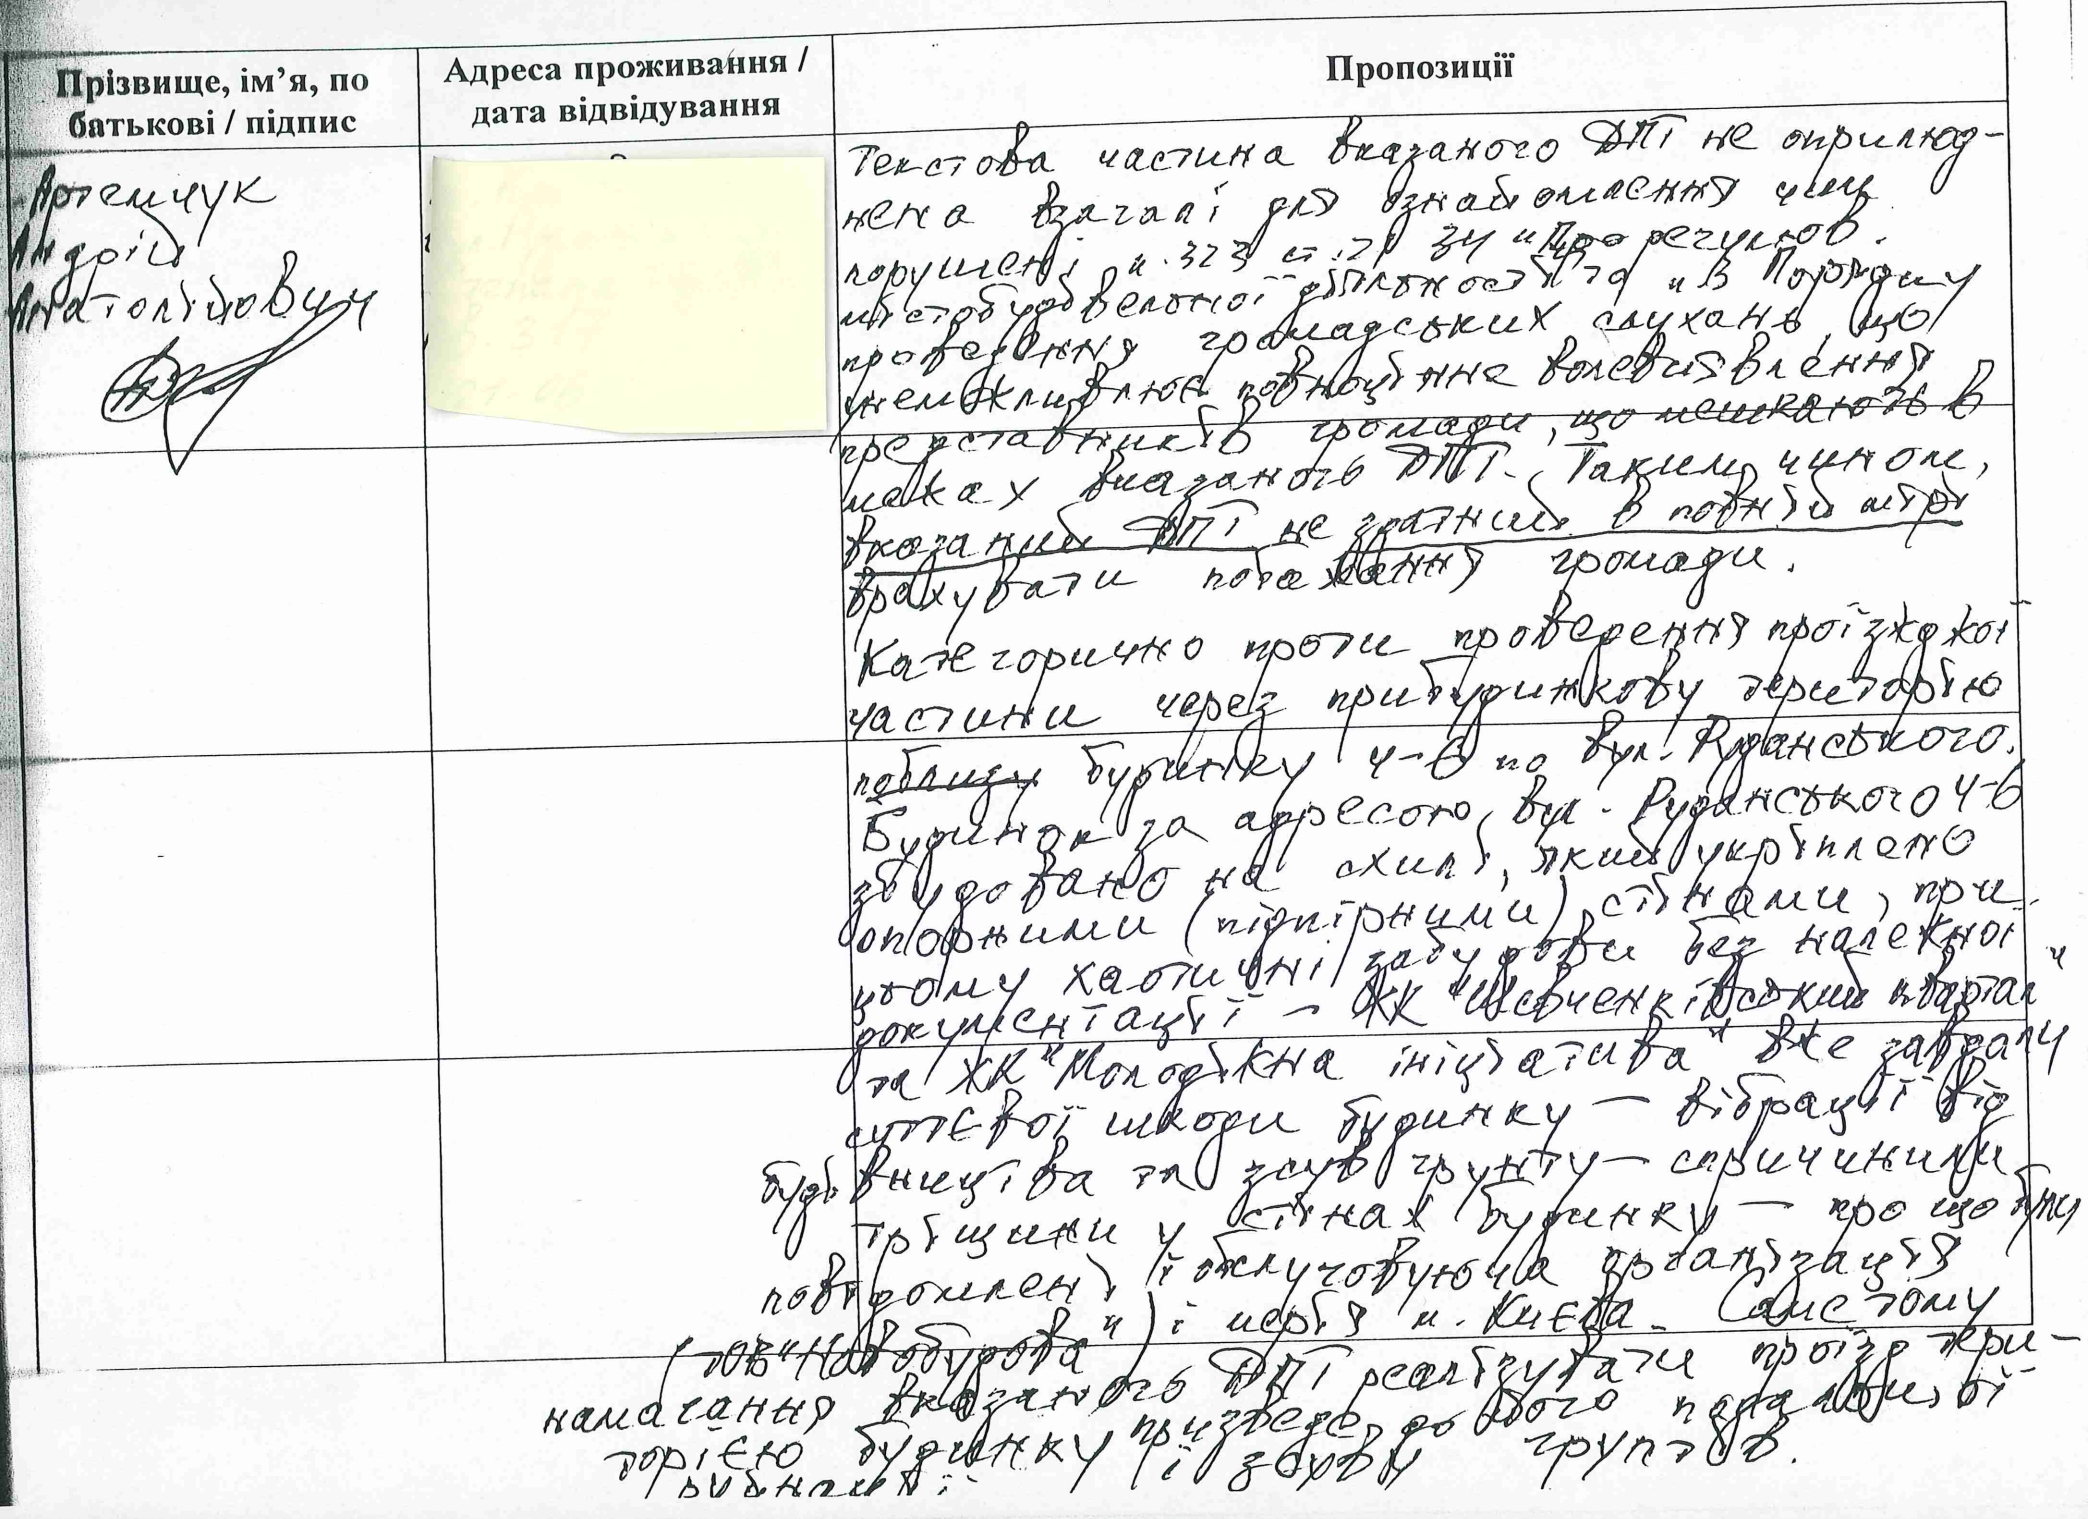 Прізвище, ім’я, по
батькові / підпис
Адреса проживання /
дата відвідування
Пропозиції
Артемчук
Андрій
Анатолійович
Текстова частина вказаного ДПТ не оприлюд-
нена взагалі для ознайомлення чим
порушені п. 3 ст. 21 ЗУ "Про регулюв.
містобудівельної діяльності" та п. 3 Порядку
проведення громадських слухань, що
унеможливлює повноцінне волевиявлення
представників громади, що мешкають в
межах вказаного ДПТ. Таким чином,
вказаний ДПТ не здатний в повній мірі
врахувати побажання громади.
Категорично проти проведення проїзжджої
частини через прибудинкову територію
поблизу будинку 4-6 по вул. Руданського.
Будинок за адресою вул. Руданського 4-6
збудовано на схилі, який укріплено
опорними (підпірними) стінами, при
цьому хаотичні забудови без належної
документації - ЖК "Шевченківський квартал"
та ЖК "Молодіжна ініціатива" вже завдали
суттєвої шкоди будинку - вібрації від
будівництва та зсув грунту - спричинили
тріщини у стінах будинку - про що були
повідомлені і обслуговуюча організація
(ТОВ "Новобудова") і мерія м. Києва. Саме тому
намагання вказаного ДПТ реалізувати проїзд тери-
торією будинку призведе до його подальшої
руйнації і зсуву грунтів.